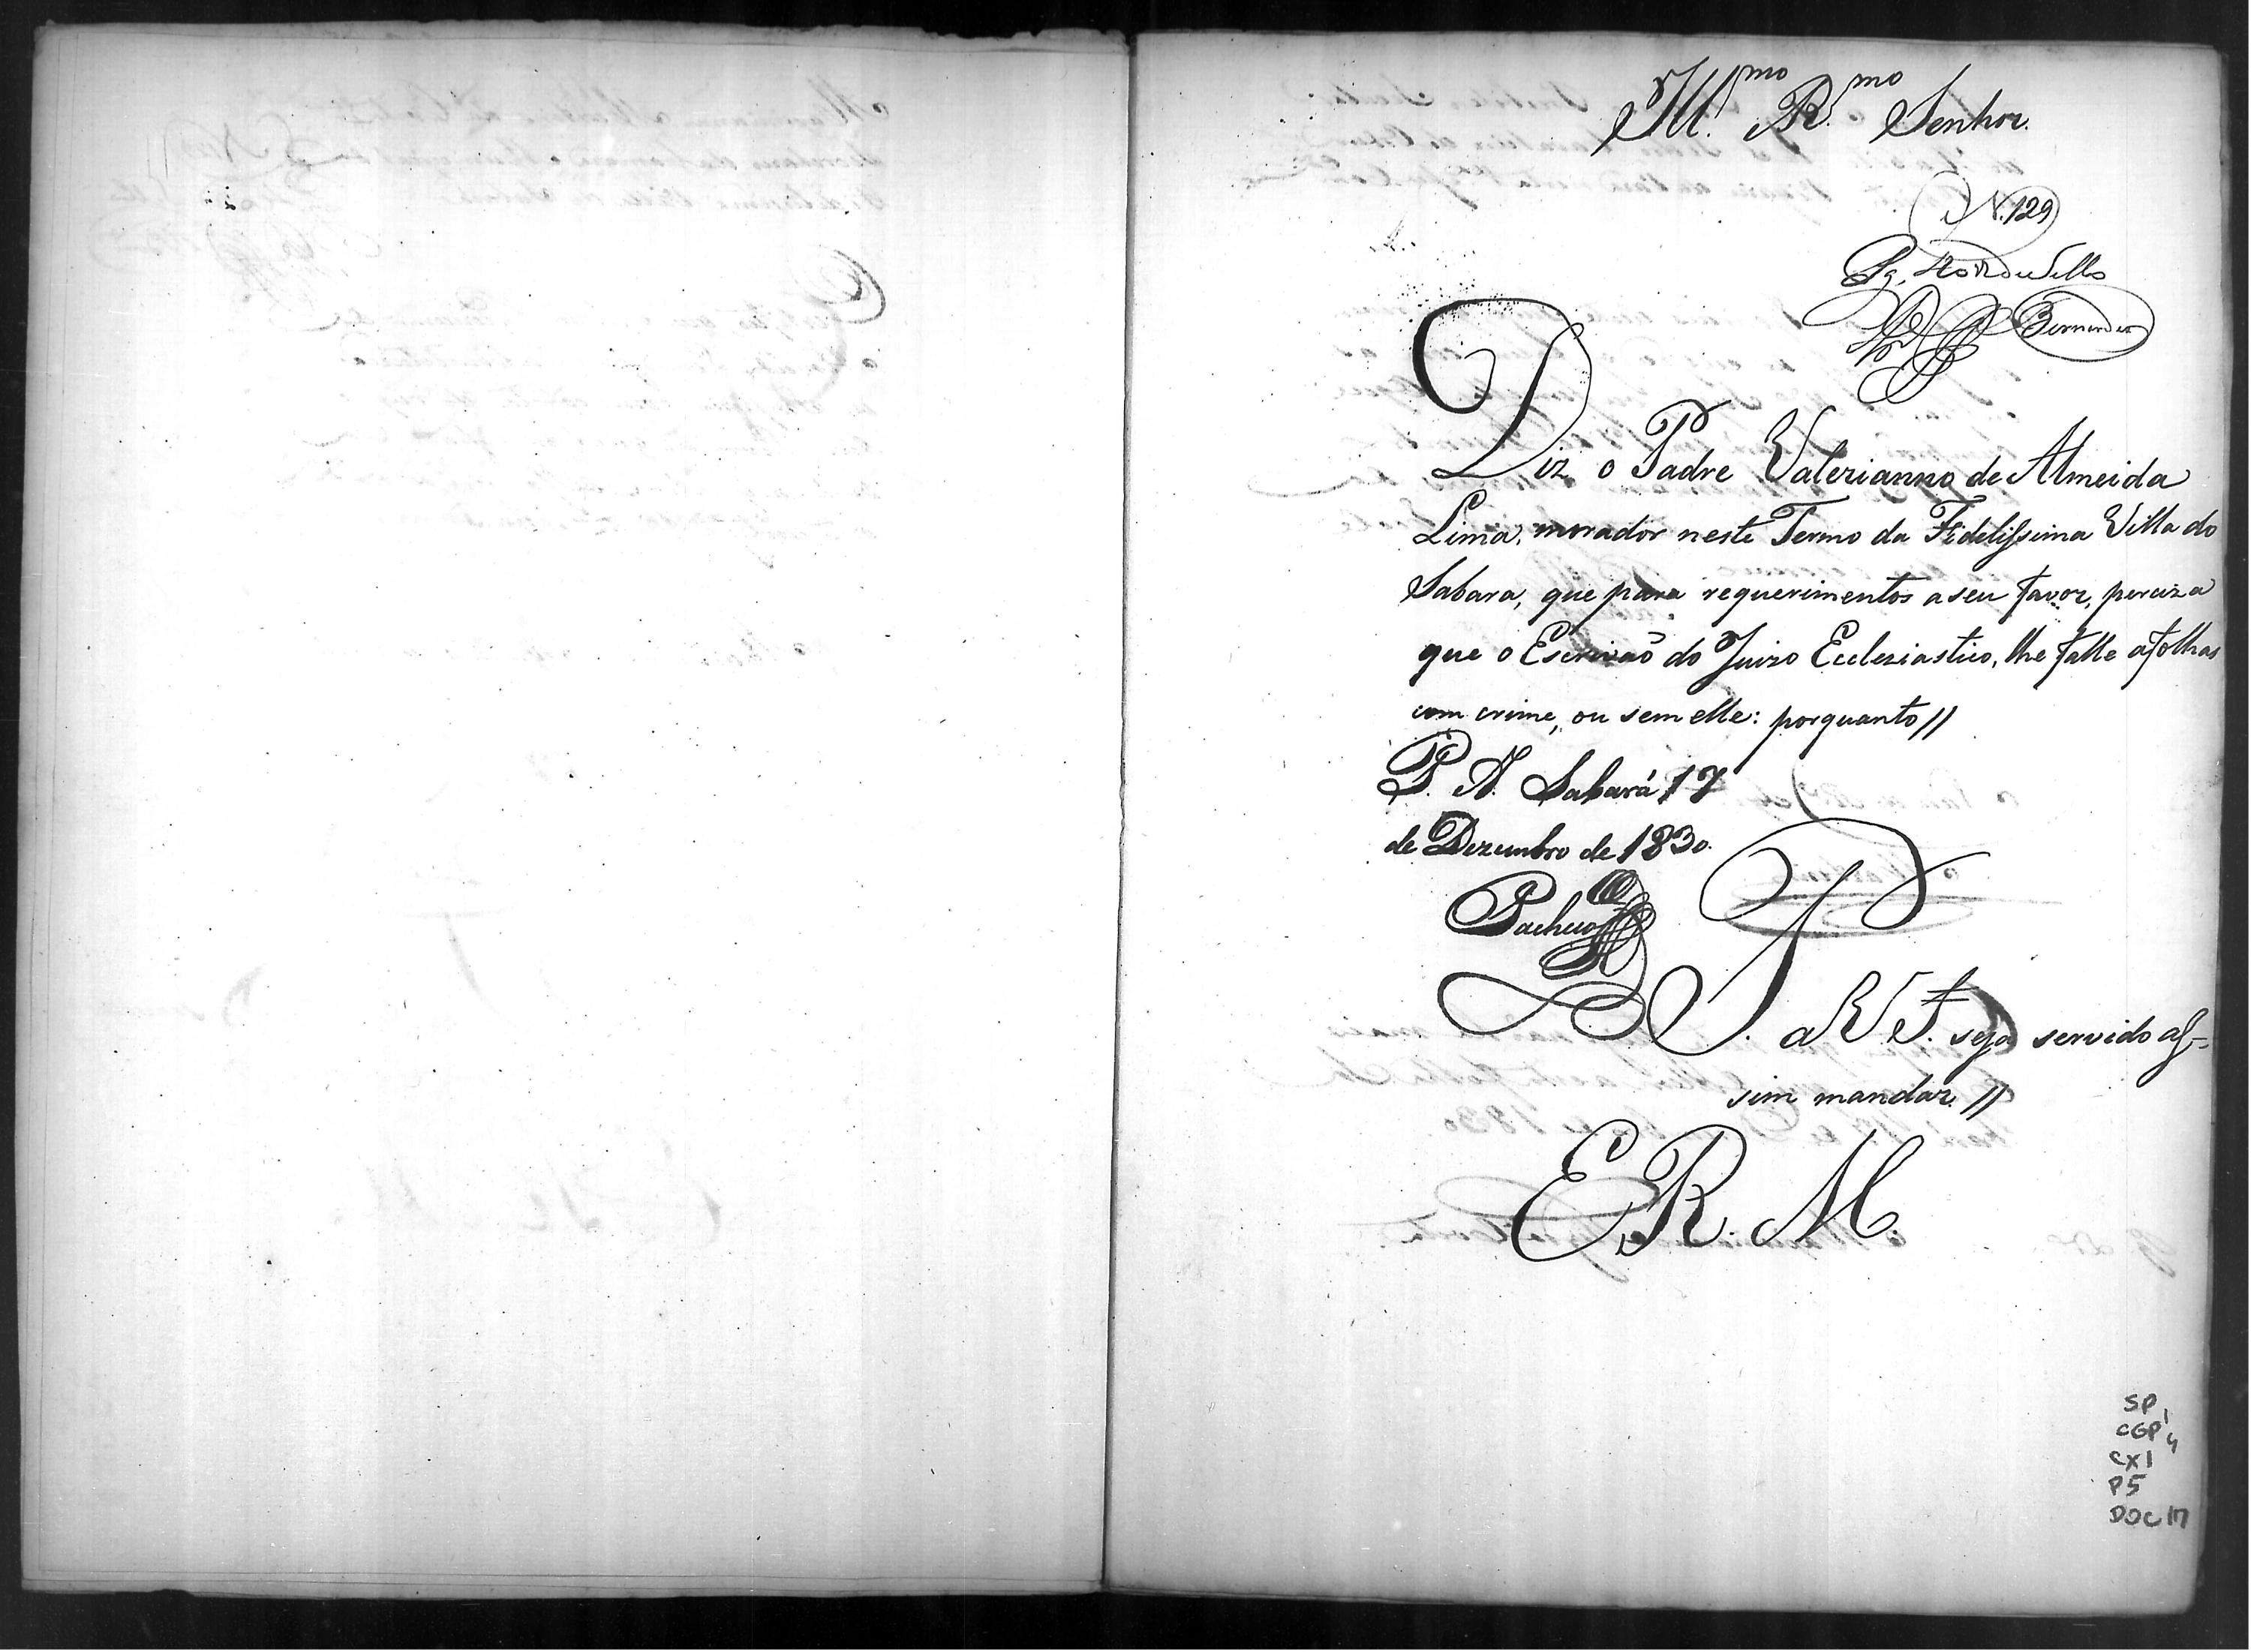 Ill.mo R.mo Senhor.
N. 129
Pg. 40 rs de Sello
Bernardes
Diz o Padre Valerianno de Almeida
Lima, morador neste Termo da Fidelissima Villa do
Sabara, que para requerimentos a seu favor, perciza
que o Escrivaõ do Juizo Ecleziastico, lhe falle afolhas
com crime, ou sem elle: porquanto //
P. A. Sabará 17
de Dezembro de 1830.
Pacheco
P. a V S. seja servido as-
sim mandar. //
E. R. M.
SP
CGP 1/4
CX1
P5
DOC 17